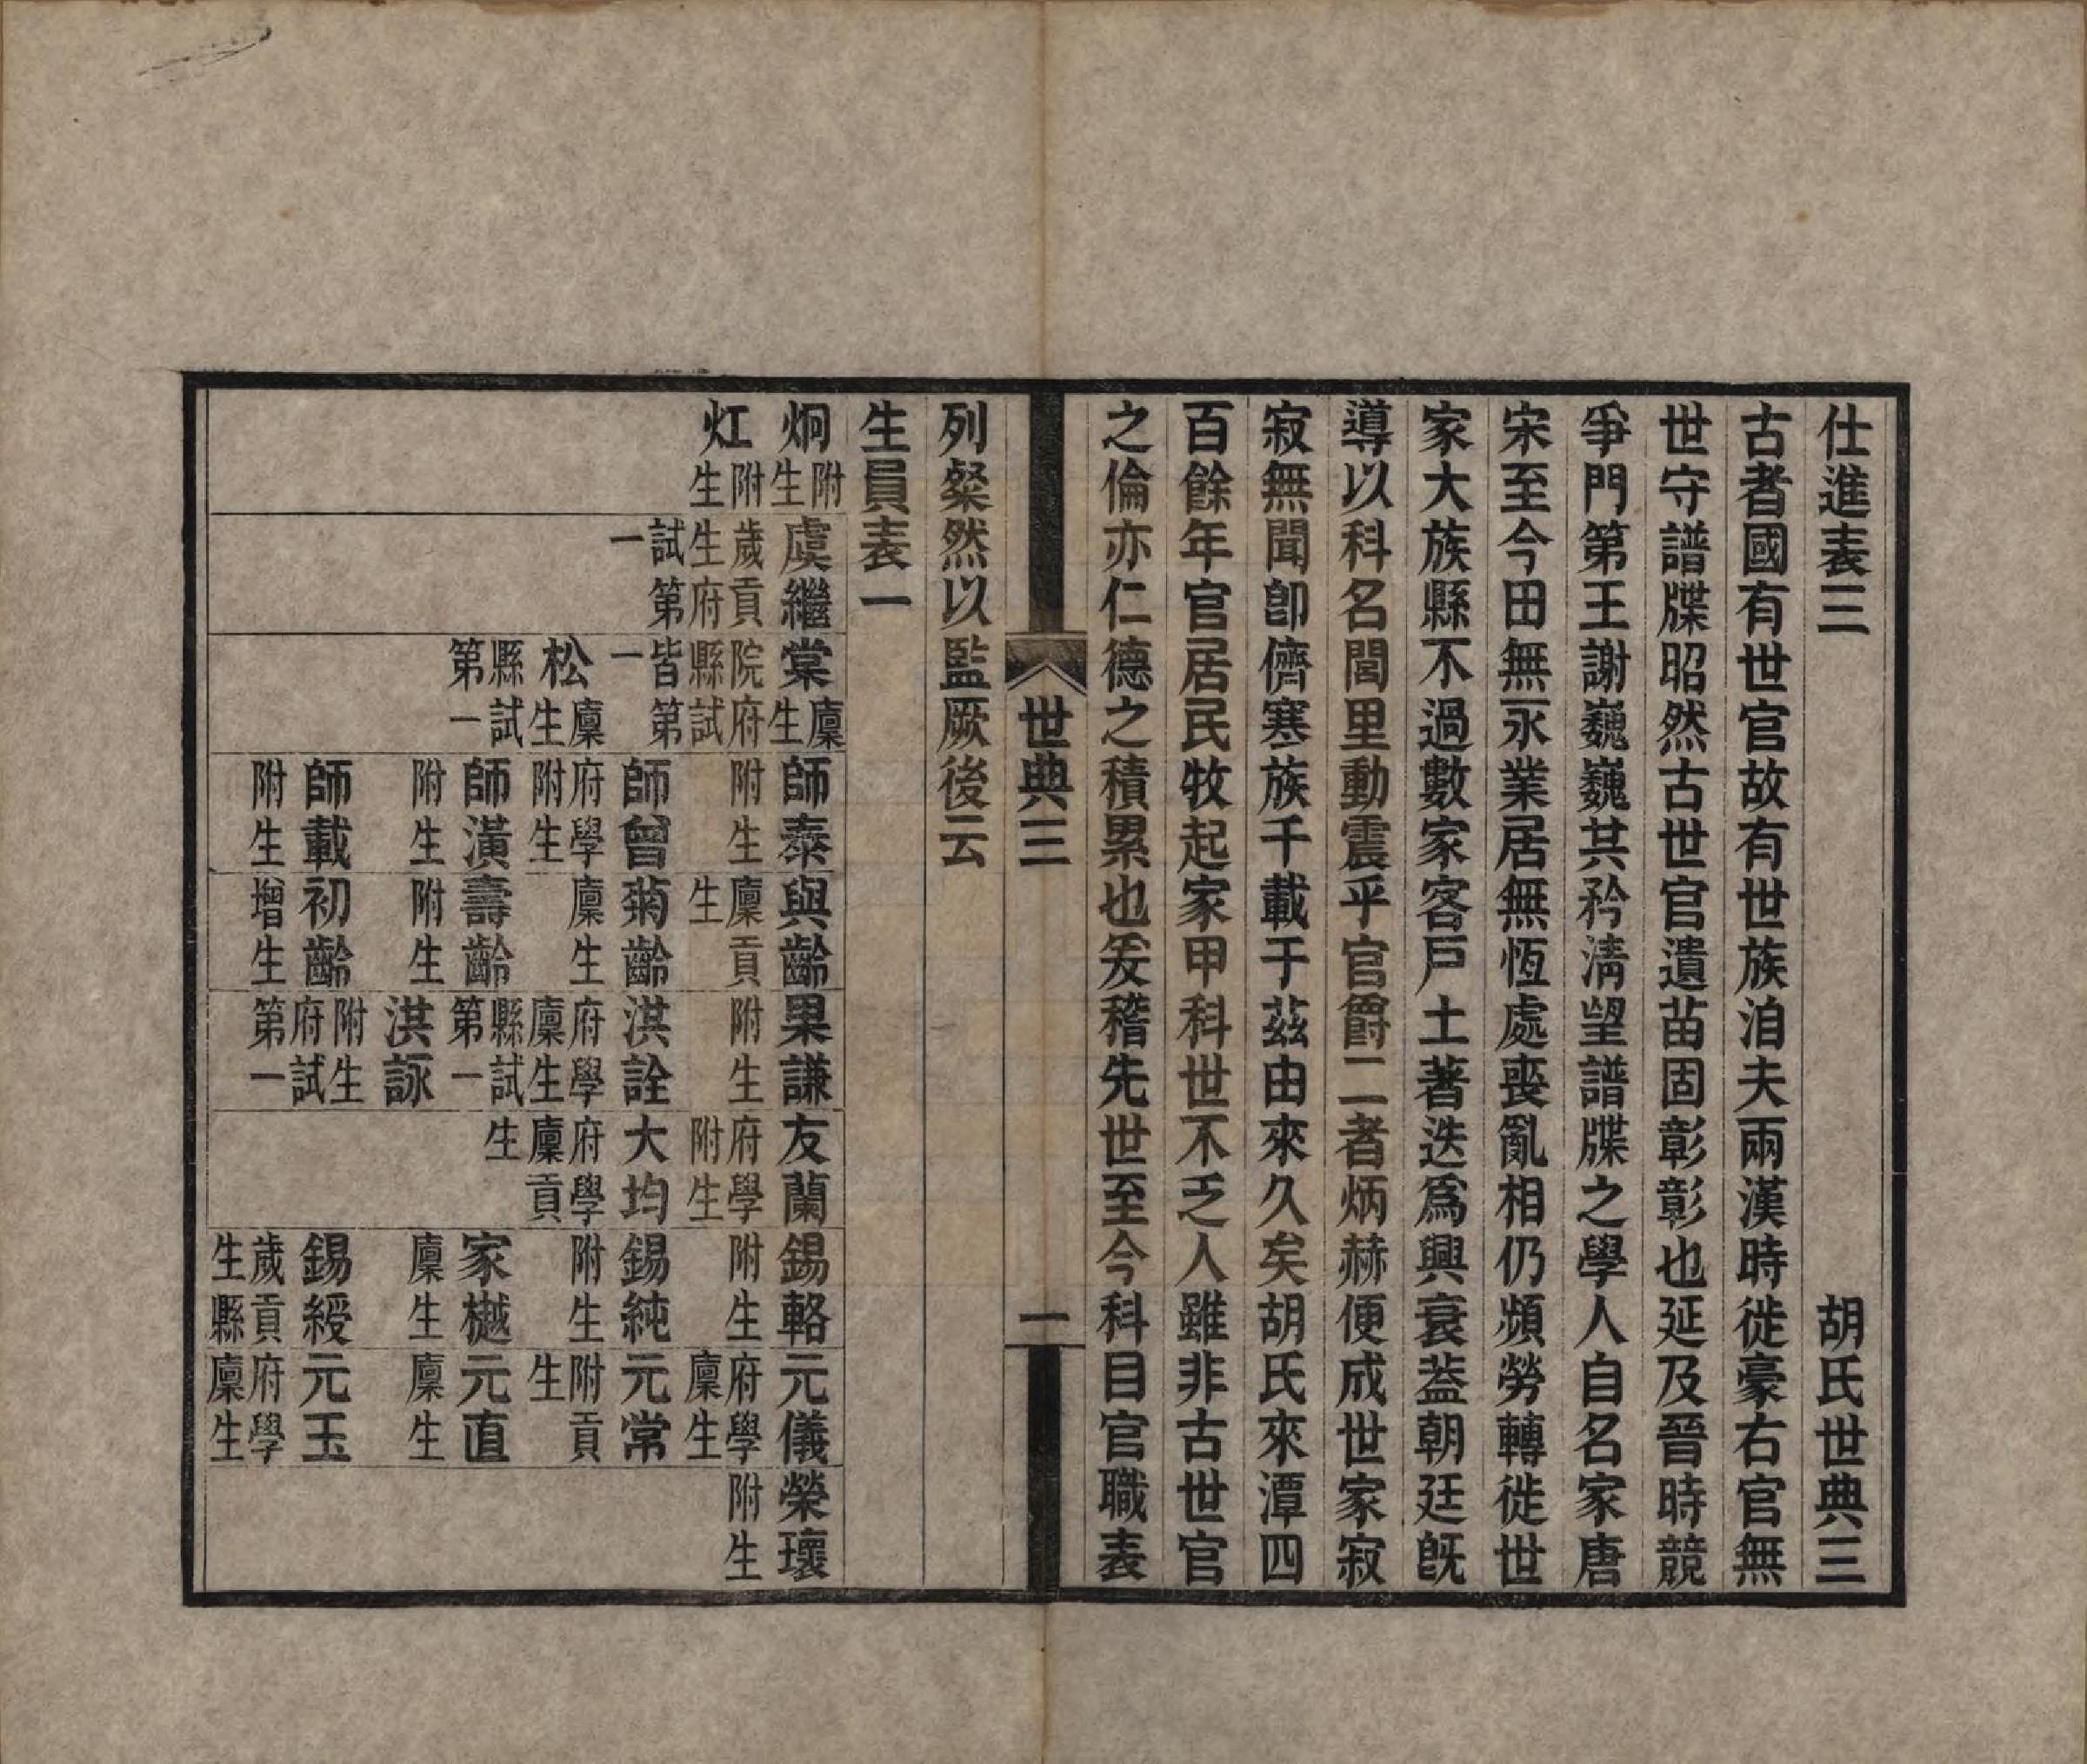 仕進表三　胡氏世典三
古者國有世官故有世族洎夫兩漢時徙豪右官無
世守譜牒昭然古世官遺苗固彰彰也延及晉時競
爭門第王謝巍巍其矜淸望譜牒之學人自名家唐
宋至今田無永業居無恆處喪亂相仍頻勞轉徙世
家大族縣不過數家客戶土著迭爲興衰葢朝廷旣
導以科名閭里動震乎官爵二者炳赫便成世家寂
寂無聞卽儕寒族千載于茲由來久矣胡氏來潭四
百餘年官居民牧起家甲科世不乏人雖非古世官
之倫亦仁德之積累也爰稽先世至今科目官職表
世典三　一
列粲然以監厥後云
生員表一
炯附生
灴附生
虞繼歲貢生府試第一
棠廩生院府縣試皆第一
松廩生縣試第一
師泰附生
師曾府學附生
師潢附生
師載附生
與齡廩貢生
菊齡廩生
壽齡附生
初齡增生
果謙附生
洪詮府學廩生縣試第一
洪詠附生府試第一
友蘭府學附生
大均府學廩貢生
錫輅附生
錫純附生
家樾廩生
錫綬歲貢生縣
元儀府學廩生
元常附貢生
元直廩生
元玉府學廩生
榮瓌附生